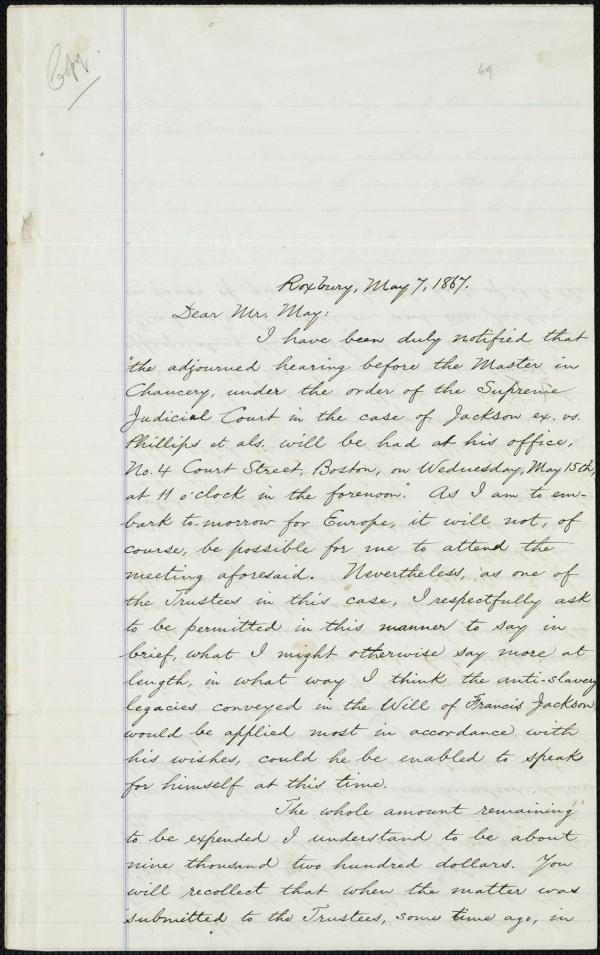 Copy.
64
Roxbury, May 7, 1867.
Dear Mr. May:
I have been duly notified that
"the adjourned hearing before the Master in
Chancery, under the order of the Supreme
Judicial Court in the case of Jackson ex. vs.
Phillips et als. will be had at his office,
No. 4 Court Street, Boston, on Wednesday, May 15th,
at 11 o'clock in the forenoon." As I am to em-
bark to-morrow for Europe, it will not, of
course, be possible for me to attend the
meeting aforesaid. Nevertheless, as one of
the Trustees in this case, I respectfully ask
to be permitted in this manner to say in
brief, what I might otherwise say more at
length, in what way I think the anti-slavery
legacies conveyed in the Will of Francis Jackson
would be applied most in accordance with
his wishes, could he be enabled to speak
for himself at this time.
The whole amount remaining
to be expended I understand to be about
nine thousand two hundred dollars. You
will recollect that when the matter was
submitted to the Trustees, some time ago, in